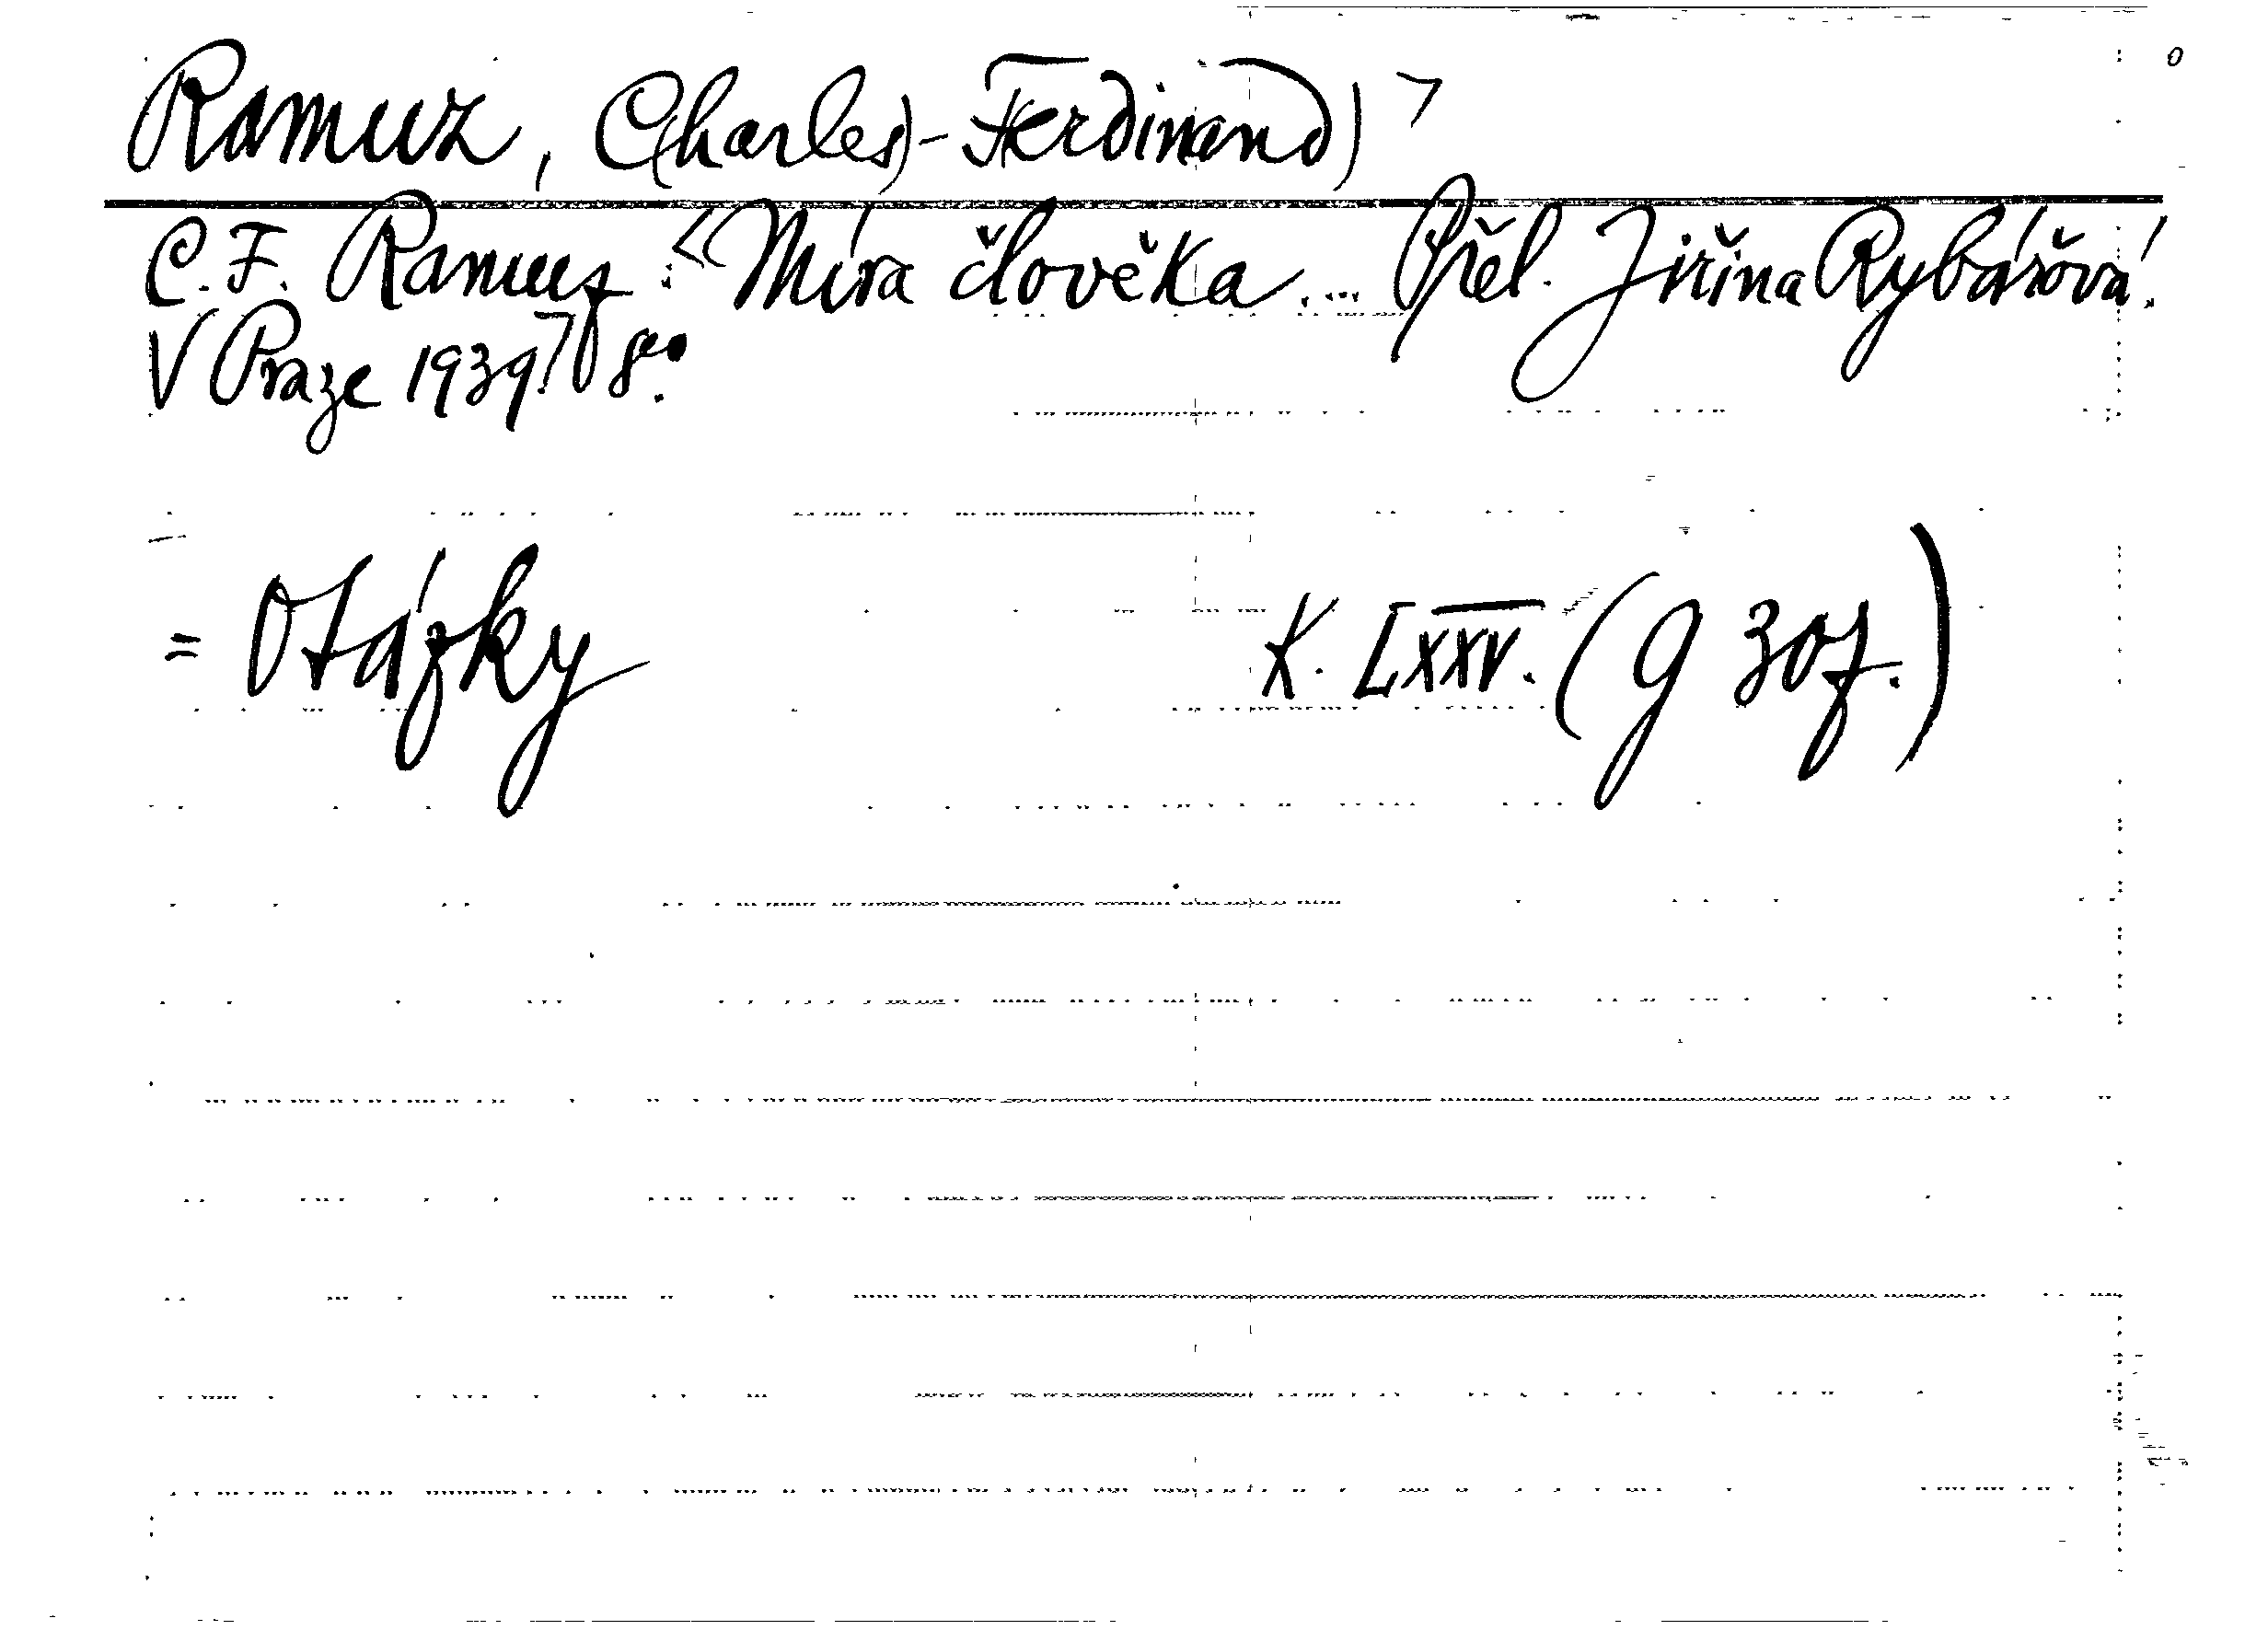 Ramuz, C(harles)-F(erdinand) >
C. F. Ramuz: <Míra člověka.... Přel. Jiřina Rybářová.
V Praze 1939.> 8º.
= Otázky K. LXXV. (g 30z.)